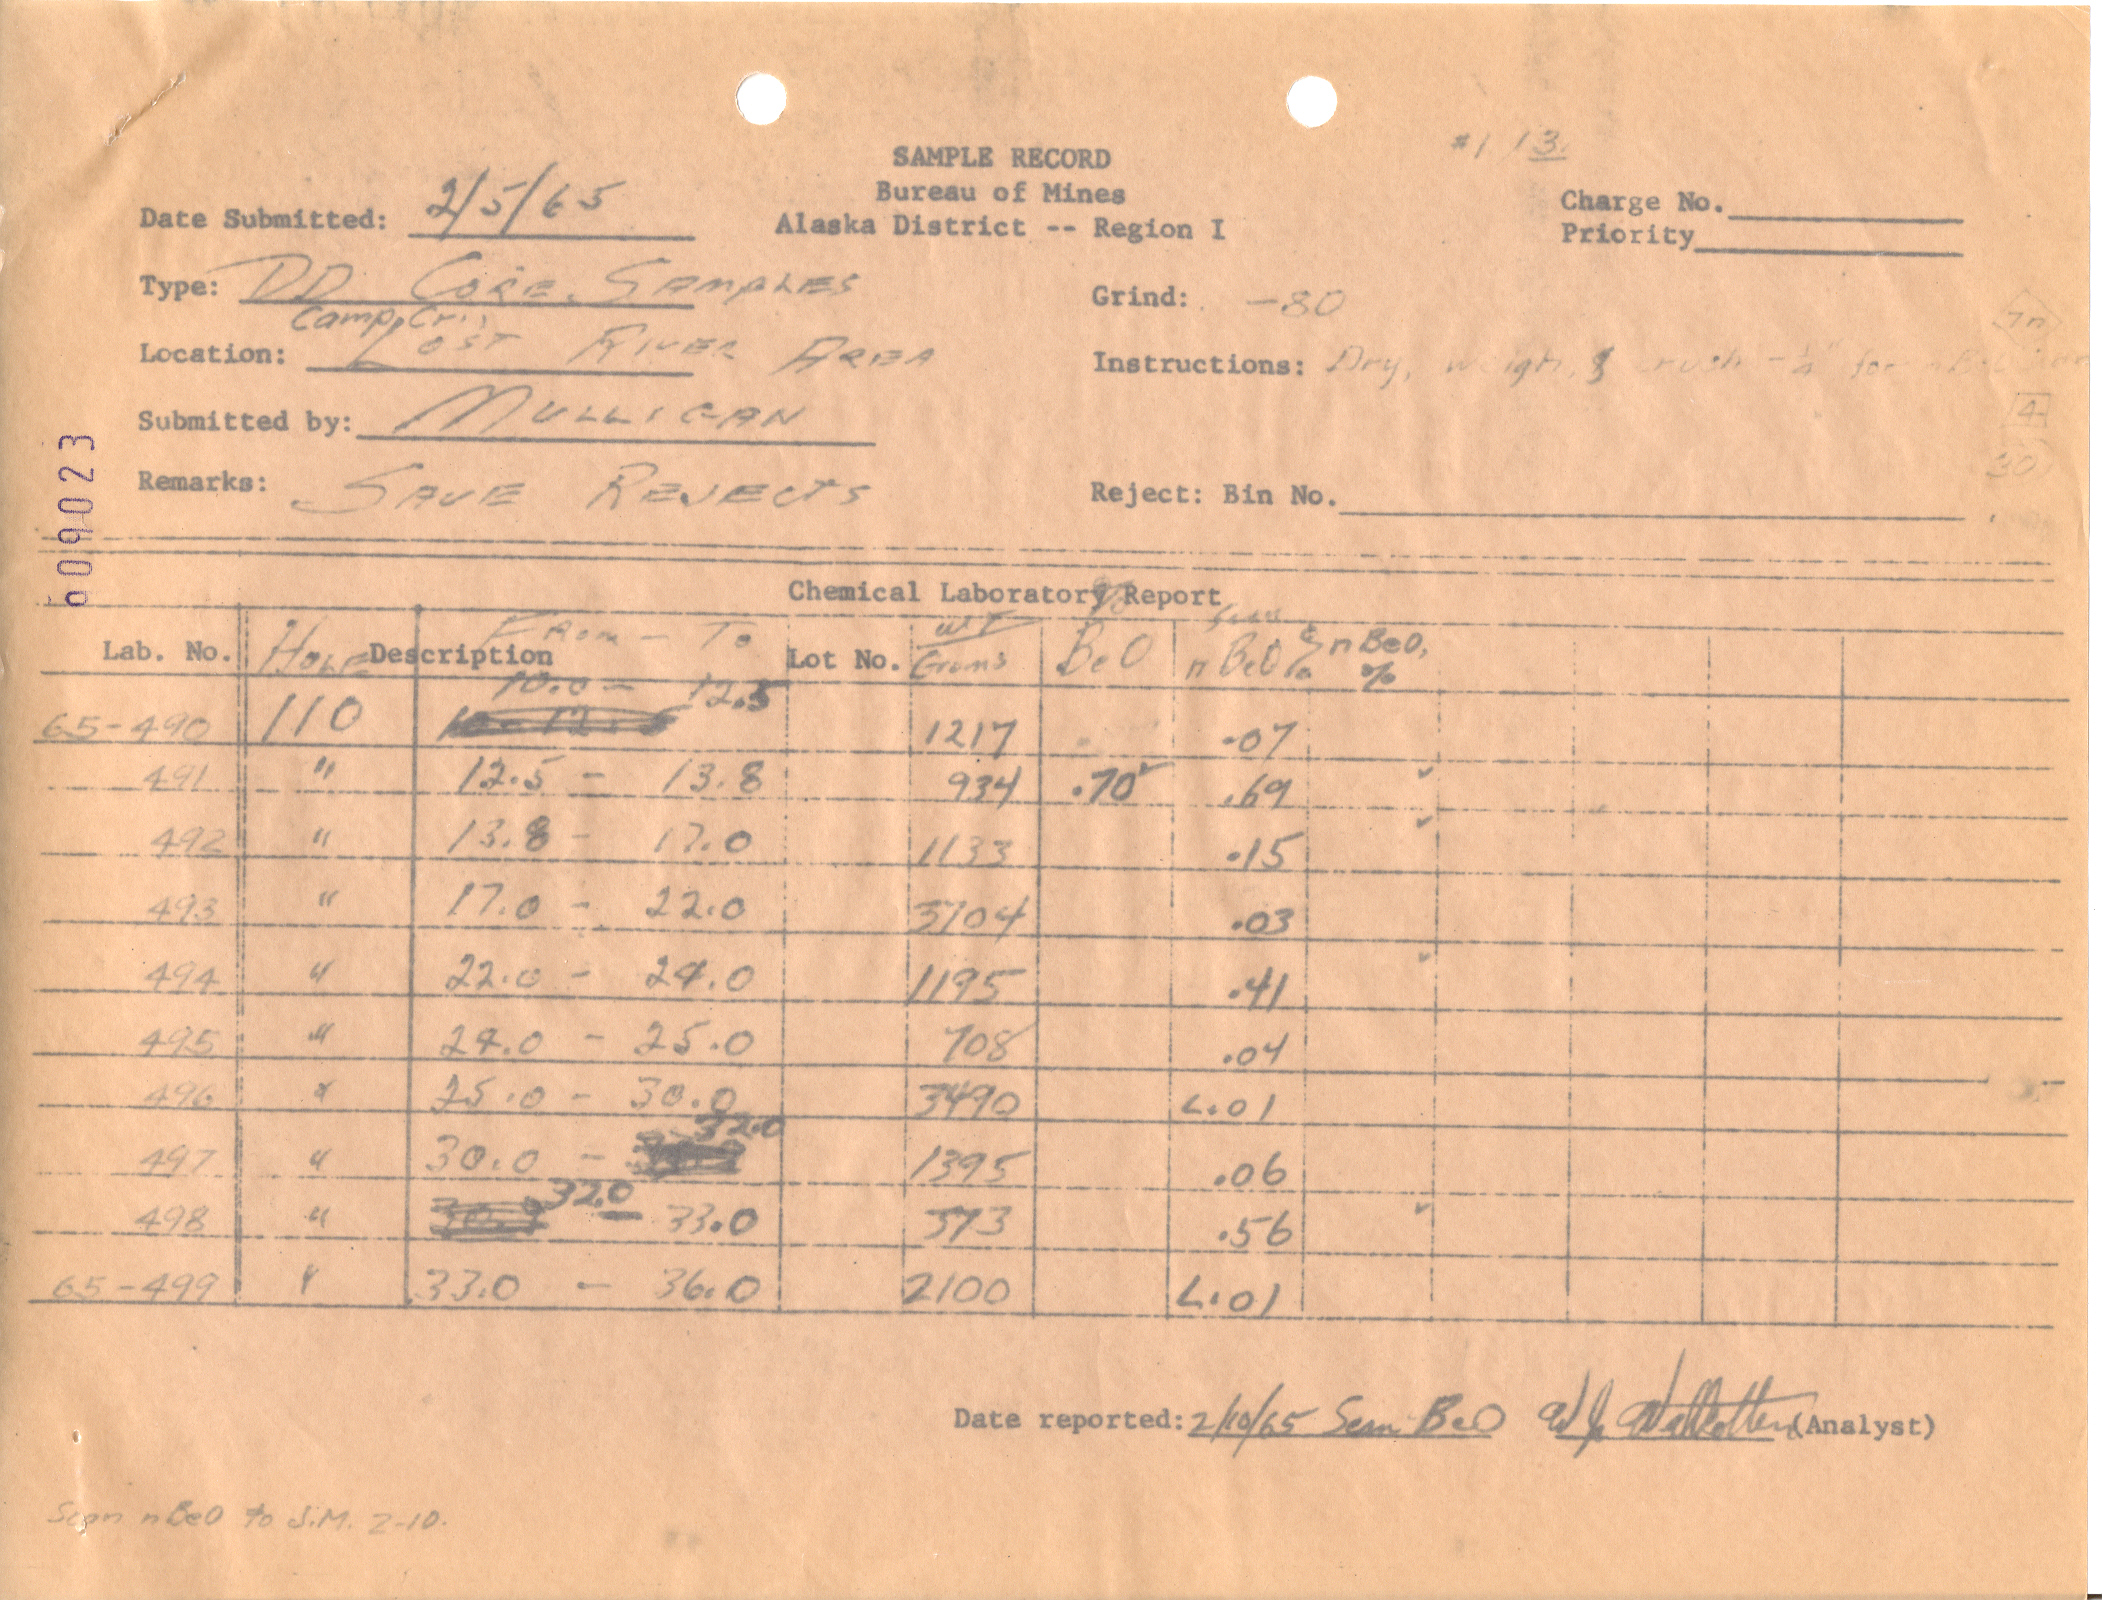 #1 13.
SAMPLE RECORD
Bureau of Mines
Alaska District -- Region I
Charge No.
Priority
Date Submitted: 2/5/65
Type: DD Core Samples
Grind: -80
Camp Cr.,
Location: Lost River Area
Instructions: Dry, weigh, & crush -1/4" for nBe
4
30
Submitted by: Mulligan
Remarks: Save Rejects
Reject: Bin No.
009023
Chemical Laboratory Report
Lab. No. Hole Description From - To Lot No. WT Grams % BeO Scan nBeO % nBeO, %
65-490 110 10.0 - 12.5 1217 .07
491 " 12.5 - 13.8 934 .70 .69
492 " 13.8 - 17.0 1133 .15
493 " 17.0 - 22.0 3704 .03
494 " 22.0 - 24.0 1195 .41
495 " 24.0 - 25.0 708 .04
496 " 25.0 - 30.0 3490 L.01
497 " 30.0 - 32.0 1395 .06
498 " 32.0 - 33.0 573 .56
65-499 " 33.0 - 36.0 2100 L.01
Date reported: 2/10/65 Scan BeO (Analyst)
Scan nBeO to J.M. 2-10.